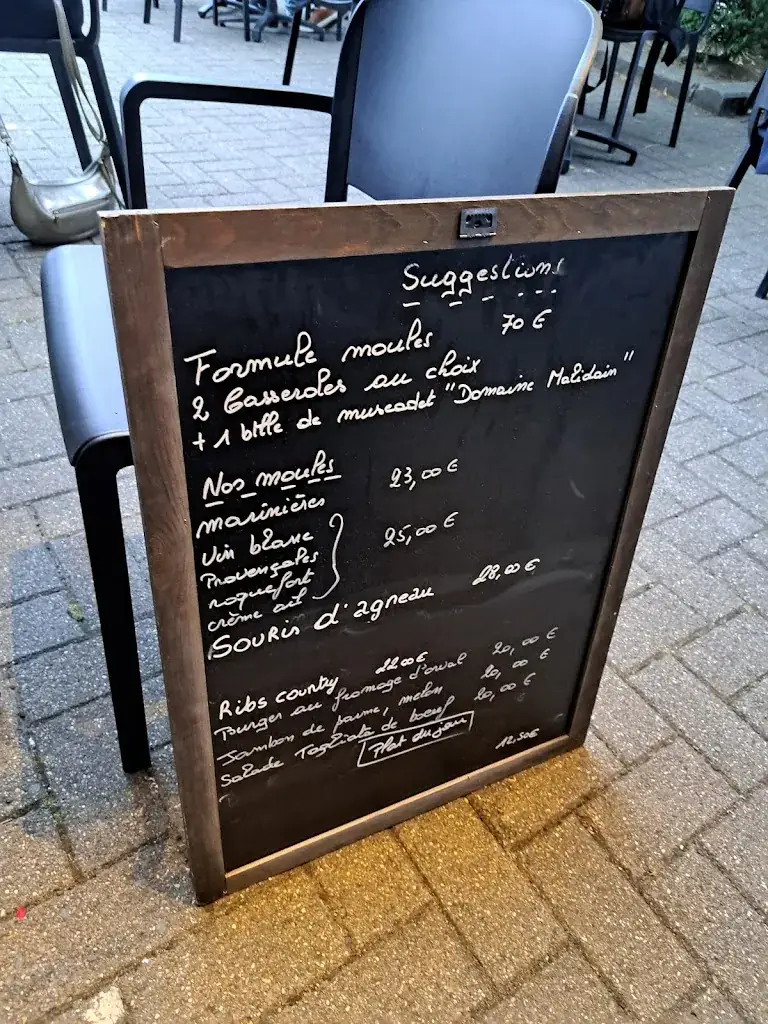 Suggestions
Formule moules 70 €
2 Casseroles au choix
+ 1 btlle de muscadet "Domaine Malidain"
Nos moules
marinières 23,00 €
Vin blanc
Provençales 25,00 €
roquefort
crème ail
Souris d'agneau 28,00 €
Ribs country 22 00 €
Burger au fromage d'orval 20,00 €
Jambon de parme, melon 20,00 €
Salade Tagliata de boeuf 20,00 €
Plat du jour 12,50€